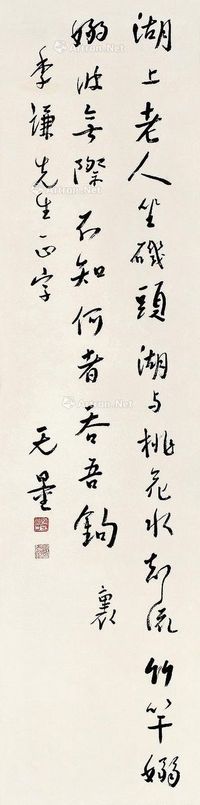 湖上老人坐磯頭湖与桃花水却流竹竿嫋
嫋波無際不知何者吞吾鉤 裏
季謙先生正字
无量
Artron.Net